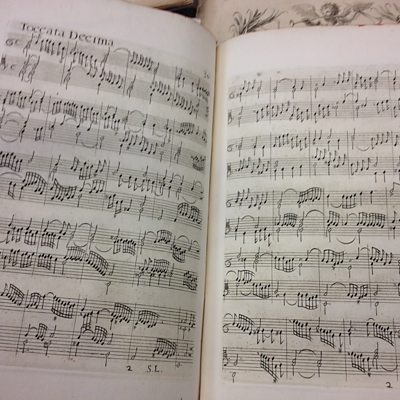 Toccata Decima
2 S.L.
2